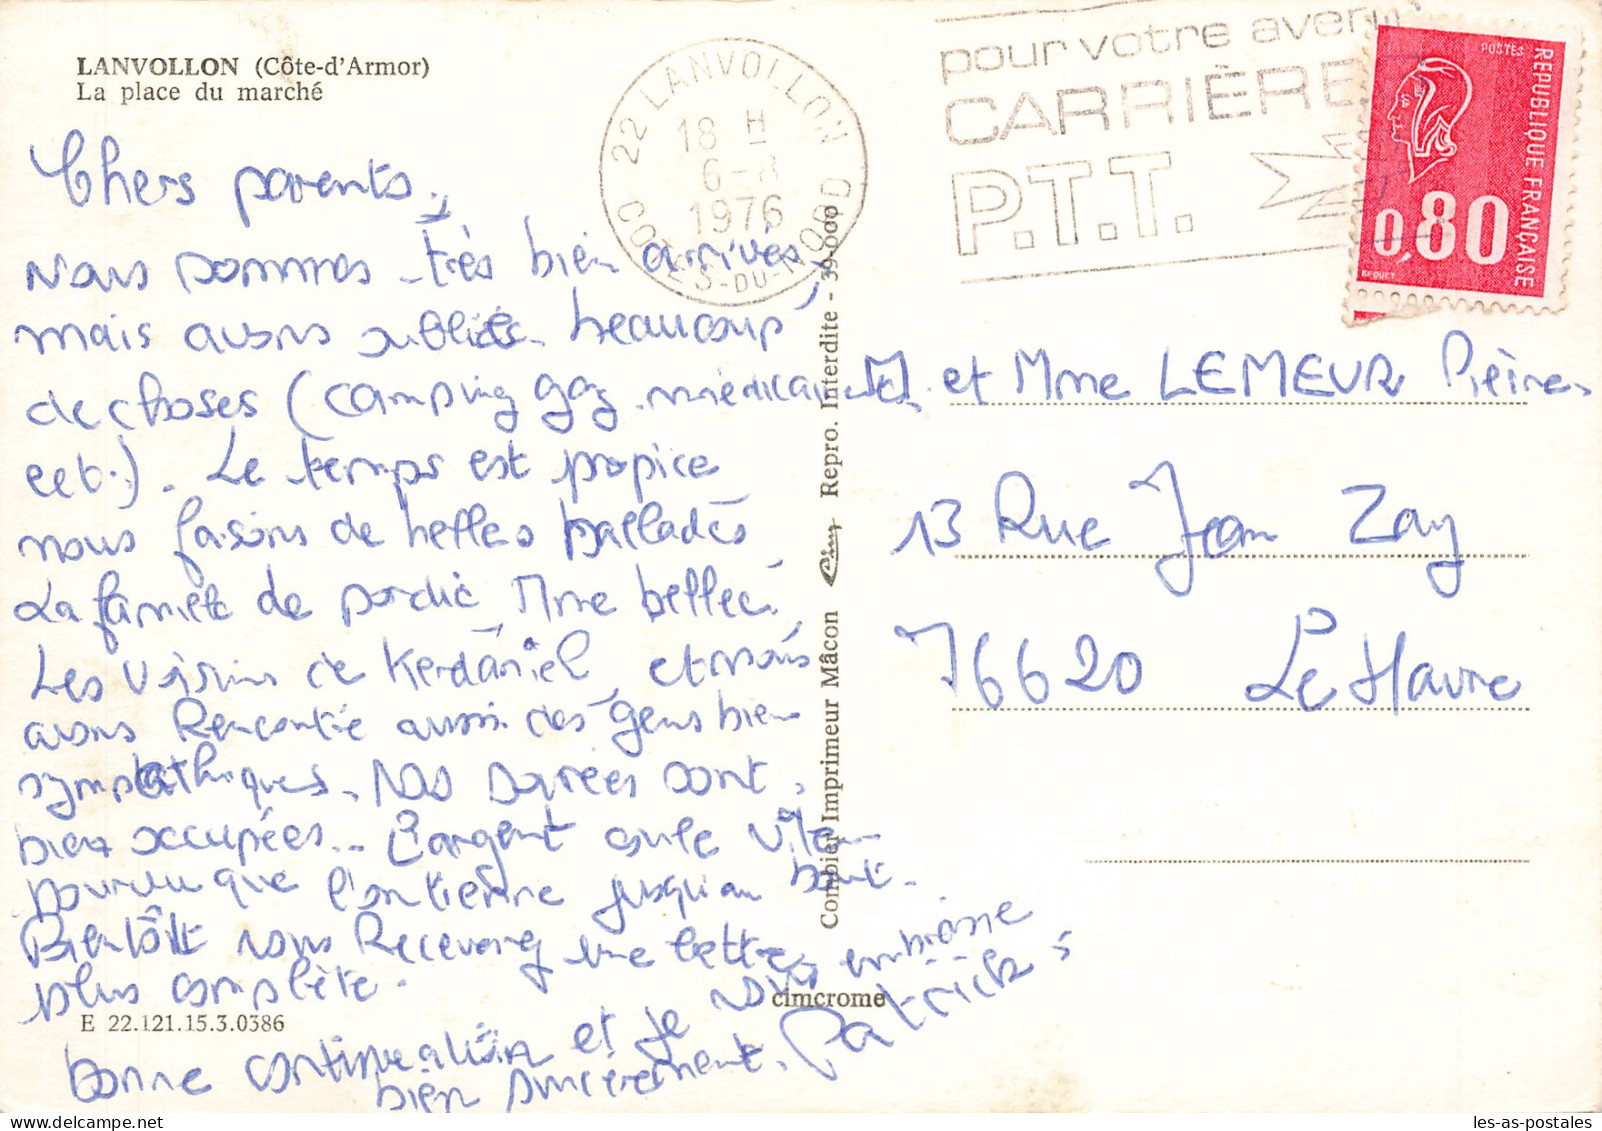 LANVOLLON (Côte-d'Armor)
La place du marché
22 LANVOLLON
18 H
6-8
1976
COTES-DU-NORD
pour votre avenir
CARRIÈRE
P.T.T.
POSTES
REPUBLIQUE FRANÇAISE
0,80
BEQUET
Chers parents,
Nous sommes très bien arrivés,
mais avons oubliés beaucoup
de choses (camping gaz, médicament
ect.). Le temps est propice
nous faisons de belles ballades
La famille de pordic, Mme bellec,
Les voisins de Kerdaniel, et nous
avons Rencontré aussi des gens bien
sympathiques. Nos soirées sont
bien occupées... L'argent coule vite
pourvu que l'on tienne jusqu'au bout.
Bientôt vous Recevrez une lettre
plus complète.
bonne continuation et je vous embrasse
bien sincèrement. Patrick
M. et Mme LEMEUR Pierre
13 Rue Jean Zay
76620 Le Havre
Combier Imprimeur Mâcon Cim Repro. Interdite - 39.000
cimcrome
E 22.121.15.3.0386
les-as-postales